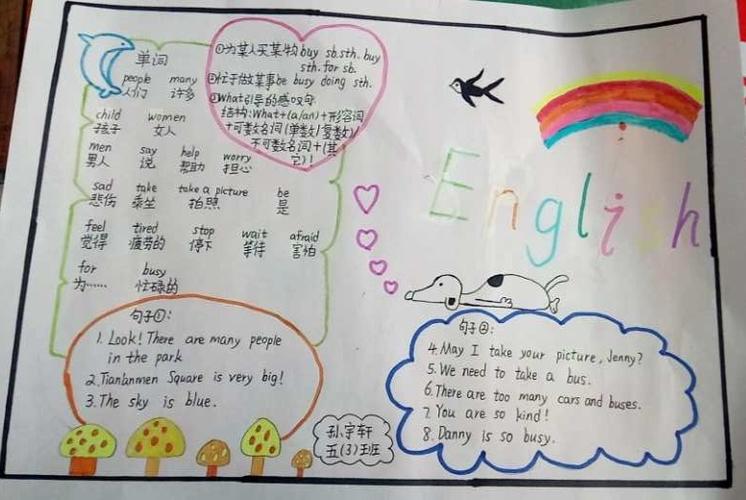 单词
people many
人们 许多
child women
孩子 女人
men say help worry
男人 说 帮助 担心
sad take take a picture be
悲伤 乘坐 拍照 是
feel tired stop wait afraid
觉得 疲劳的 停下 等待 害怕
for busy
为…… 忙碌的
①为某人买某物buy sb.sth. buy
sth. for sb.
②忙于做某事be busy doing sth.
③What引导的感叹句
结构:What+(a/an)+形容词
+可数名词(单数/复数)/
不可数名词+(其
它)!
English
句子①:
1. Look! There are many people
in the park
2.Tianlanmen Square is very big!
3.The sky is blue.
句子②:
4.May I take your picture, Jenny?
5.We need to take a bus.
6.There are too many cars and buses.
7. You are so kind!
8. Danny is so busy.
孙宇轩
五(3)班